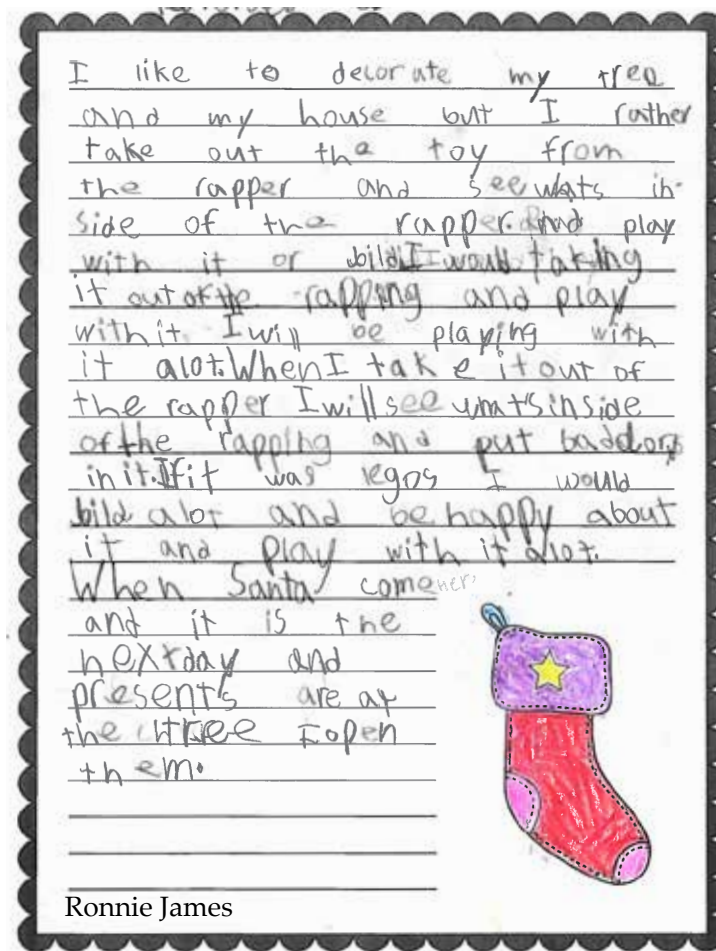 I like to decorate my tree
and my house but I rather
take out the toy from
the rapper and see whats in-
side of the rapper. And play
with it or bild. I would taking
it out of the rapping and play
with it. I will be playing with
it alot. When I take it out of
the rapper I will see what's inside
of the rapping and put
in it. If it was legos I would
bild alot and be happy about
it and play with it alot.
When Santa come
and it is the
next day and
presents are at
the tree I open
them.
Ronnie James